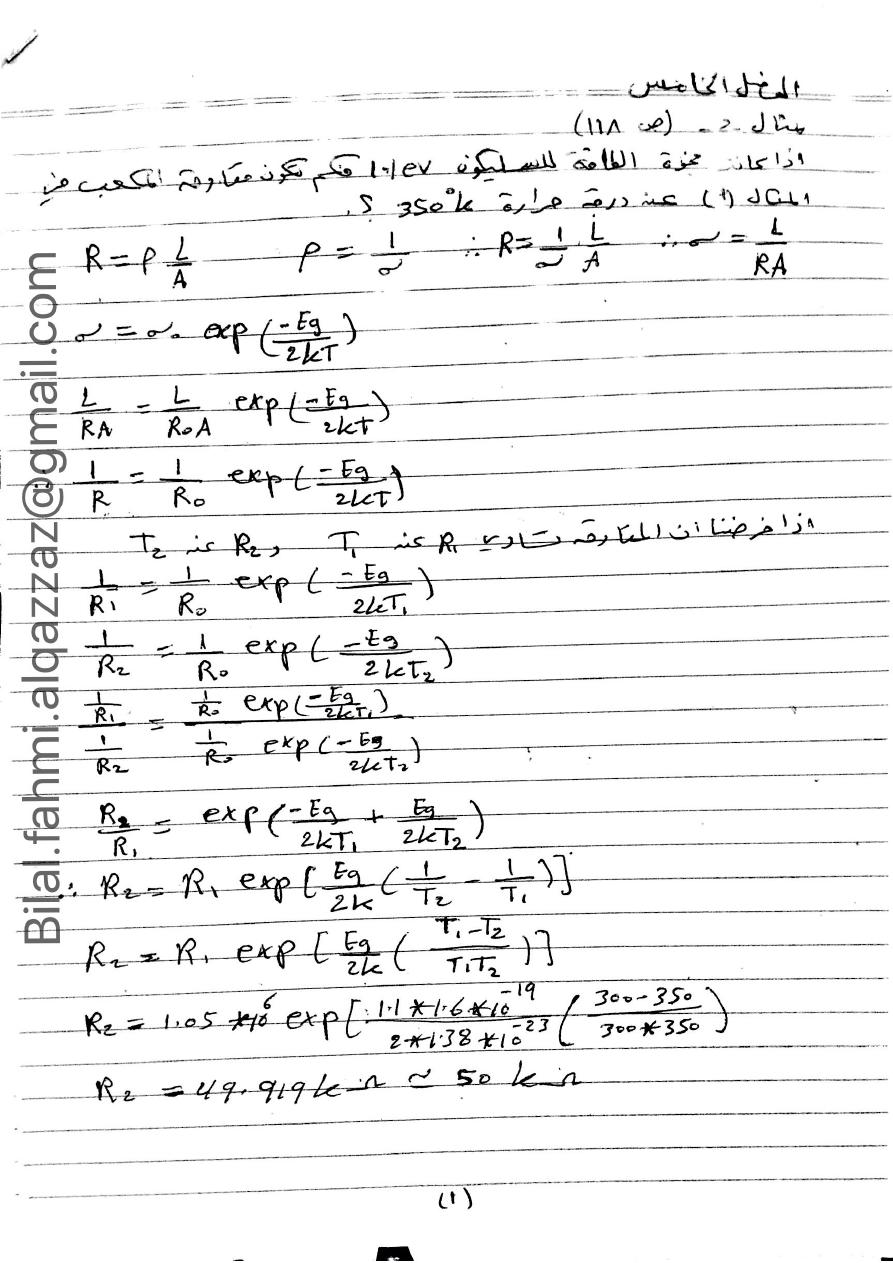 الفصل الخامس
مثال 2- (ص 118)
اذا كانت فجوة الطاقة للسليكون 1.1 eV فكم تكون مقاومة المكعب في
المثال (1) عند درجة حرارة 350°k ؟.
R = ρ L/A ρ = 1/σ ∴ R = 1/σ · L/A ∴ σ = L/RA
σ = σ₀ exp(-Eg/2kT)
L/RA = L/R₀A exp(-Eg/2kT)
1/R = 1/R₀ exp(-Eg/2kT)
اذا فرضنا ان المقاومة تساوي R₁ عند T₁ و R₂ عند T₂
1/R₁ = 1/R₀ exp(-Eg/2kT₁)
1/R₂ = 1/R₀ exp(-Eg/2kT₂)
(1/R₁)/(1/R₂) = (1/R₀ exp(-Eg/2kT₁))/(1/R₀ exp(-Eg/2kT₂))
R₂/R₁ = exp(-Eg/2kT₁ + Eg/2kT₂)
∴ R₂ = R₁ exp[Eg/2k (1/T₂ - 1/T₁)]
R₂ = R₁ exp[Eg/2k (T₁-T₂/T₁T₂)]
R₂ = 1.05 *10⁶ exp[1.1*1.6*10⁻¹⁹/2*1.38*10⁻²³ (300-350/300*350)
R₂ = 49.919 kΩ ≃ 50 kΩ
(1)
Bilal.fahmi.alqazzaz@gmail.com